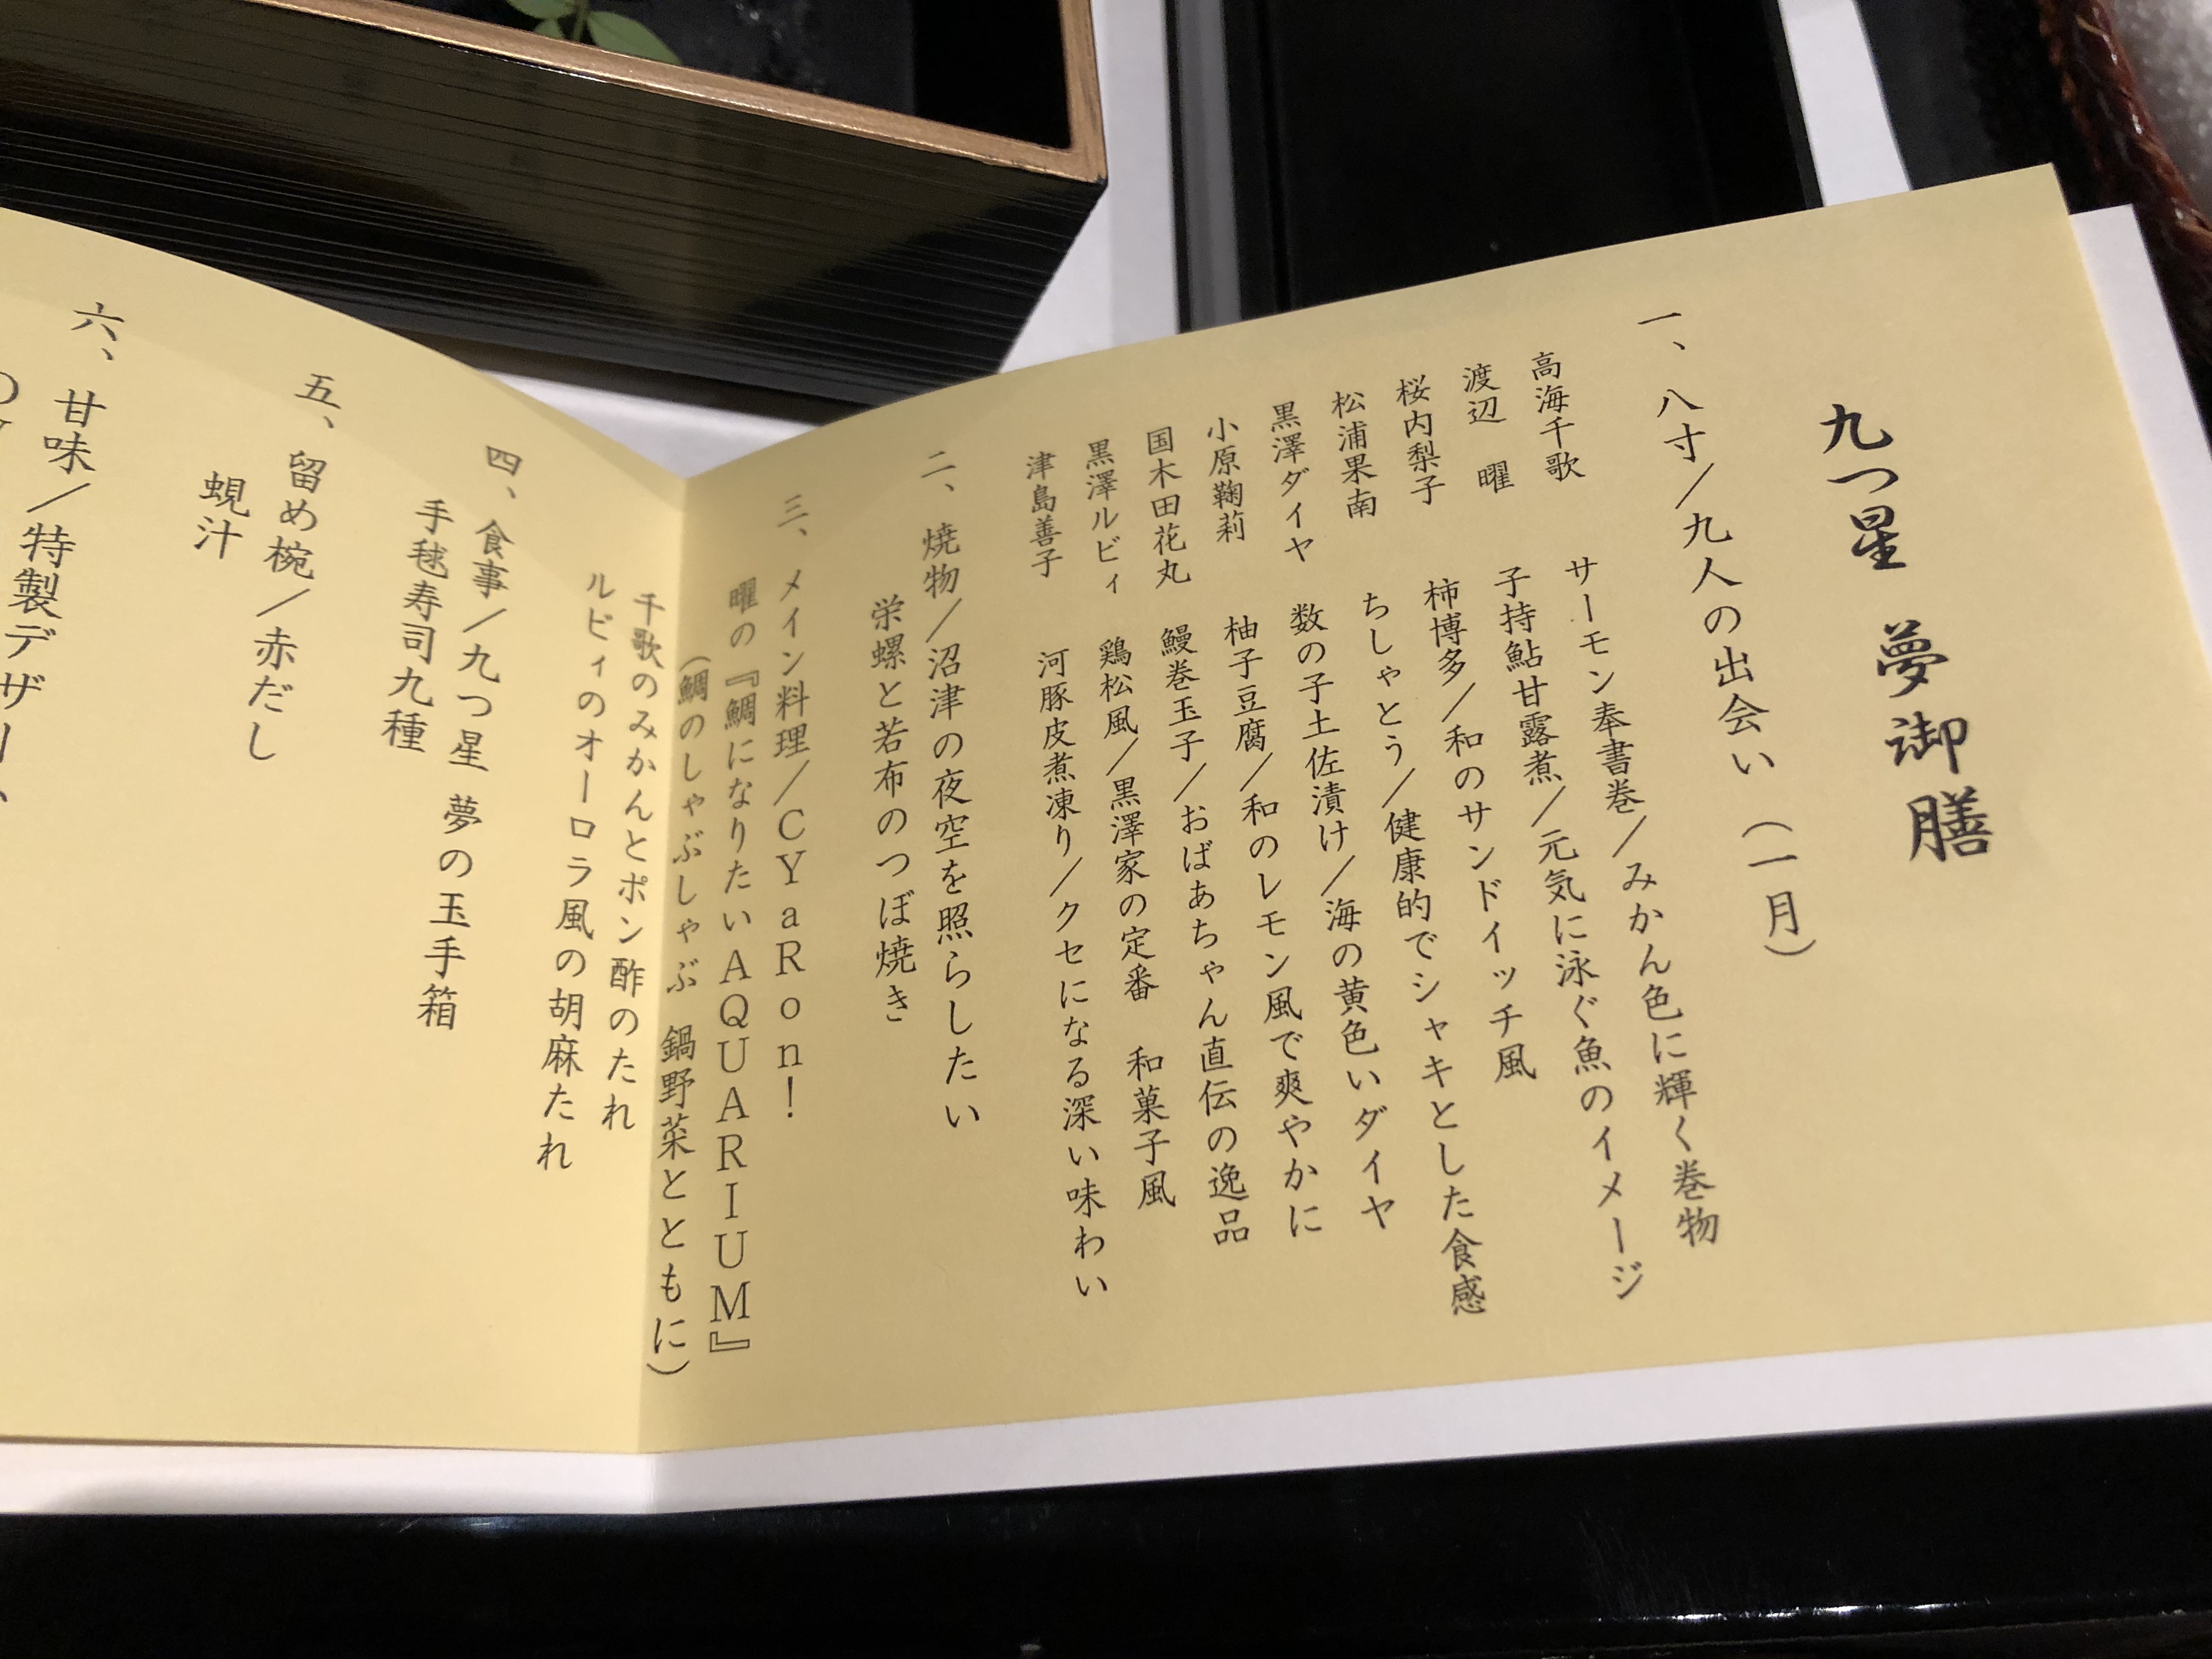 九つ星 夢御膳
一、八寸／九人の出会い（一月）
高海千歌 サーモン奉書巻／みかん色に輝く巻物
渡辺 曜 子持鮎甘露煮／元気に泳ぐ魚のイメージ
桜内梨子 柿博多／和のサンドイッチ風
松浦果南 ちしゃとう／健康的でシャキとした食感
黒澤ダイヤ 数の子土佐漬け／海の黄色いダイヤ
小原鞠莉 柚子豆腐／和のレモン風で爽やかに
国木田花丸 鰻巻玉子／おばあちゃん直伝の逸品
黒澤ルビィ 鶏松風／黒澤家の定番 和菓子風
津島善子 河豚皮煮凍り／クセになる深い味わい
二、焼物／沼津の夜空を照らしたい
栄螺と若布のつぼ焼き
三、メイン料理／CYaRon！
曜の『鯛になりたいAQUARIUM』
（鯛のしゃぶしゃぶ 鍋野菜とともに）
千歌のみかんとポン酢のたれ
ルビィのオーロラ風の胡麻たれ
四、食事／九つ星 夢の玉手箱
手毬寿司九種
五、留め椀／赤だし
蜆汁
六、甘味／特製デザー